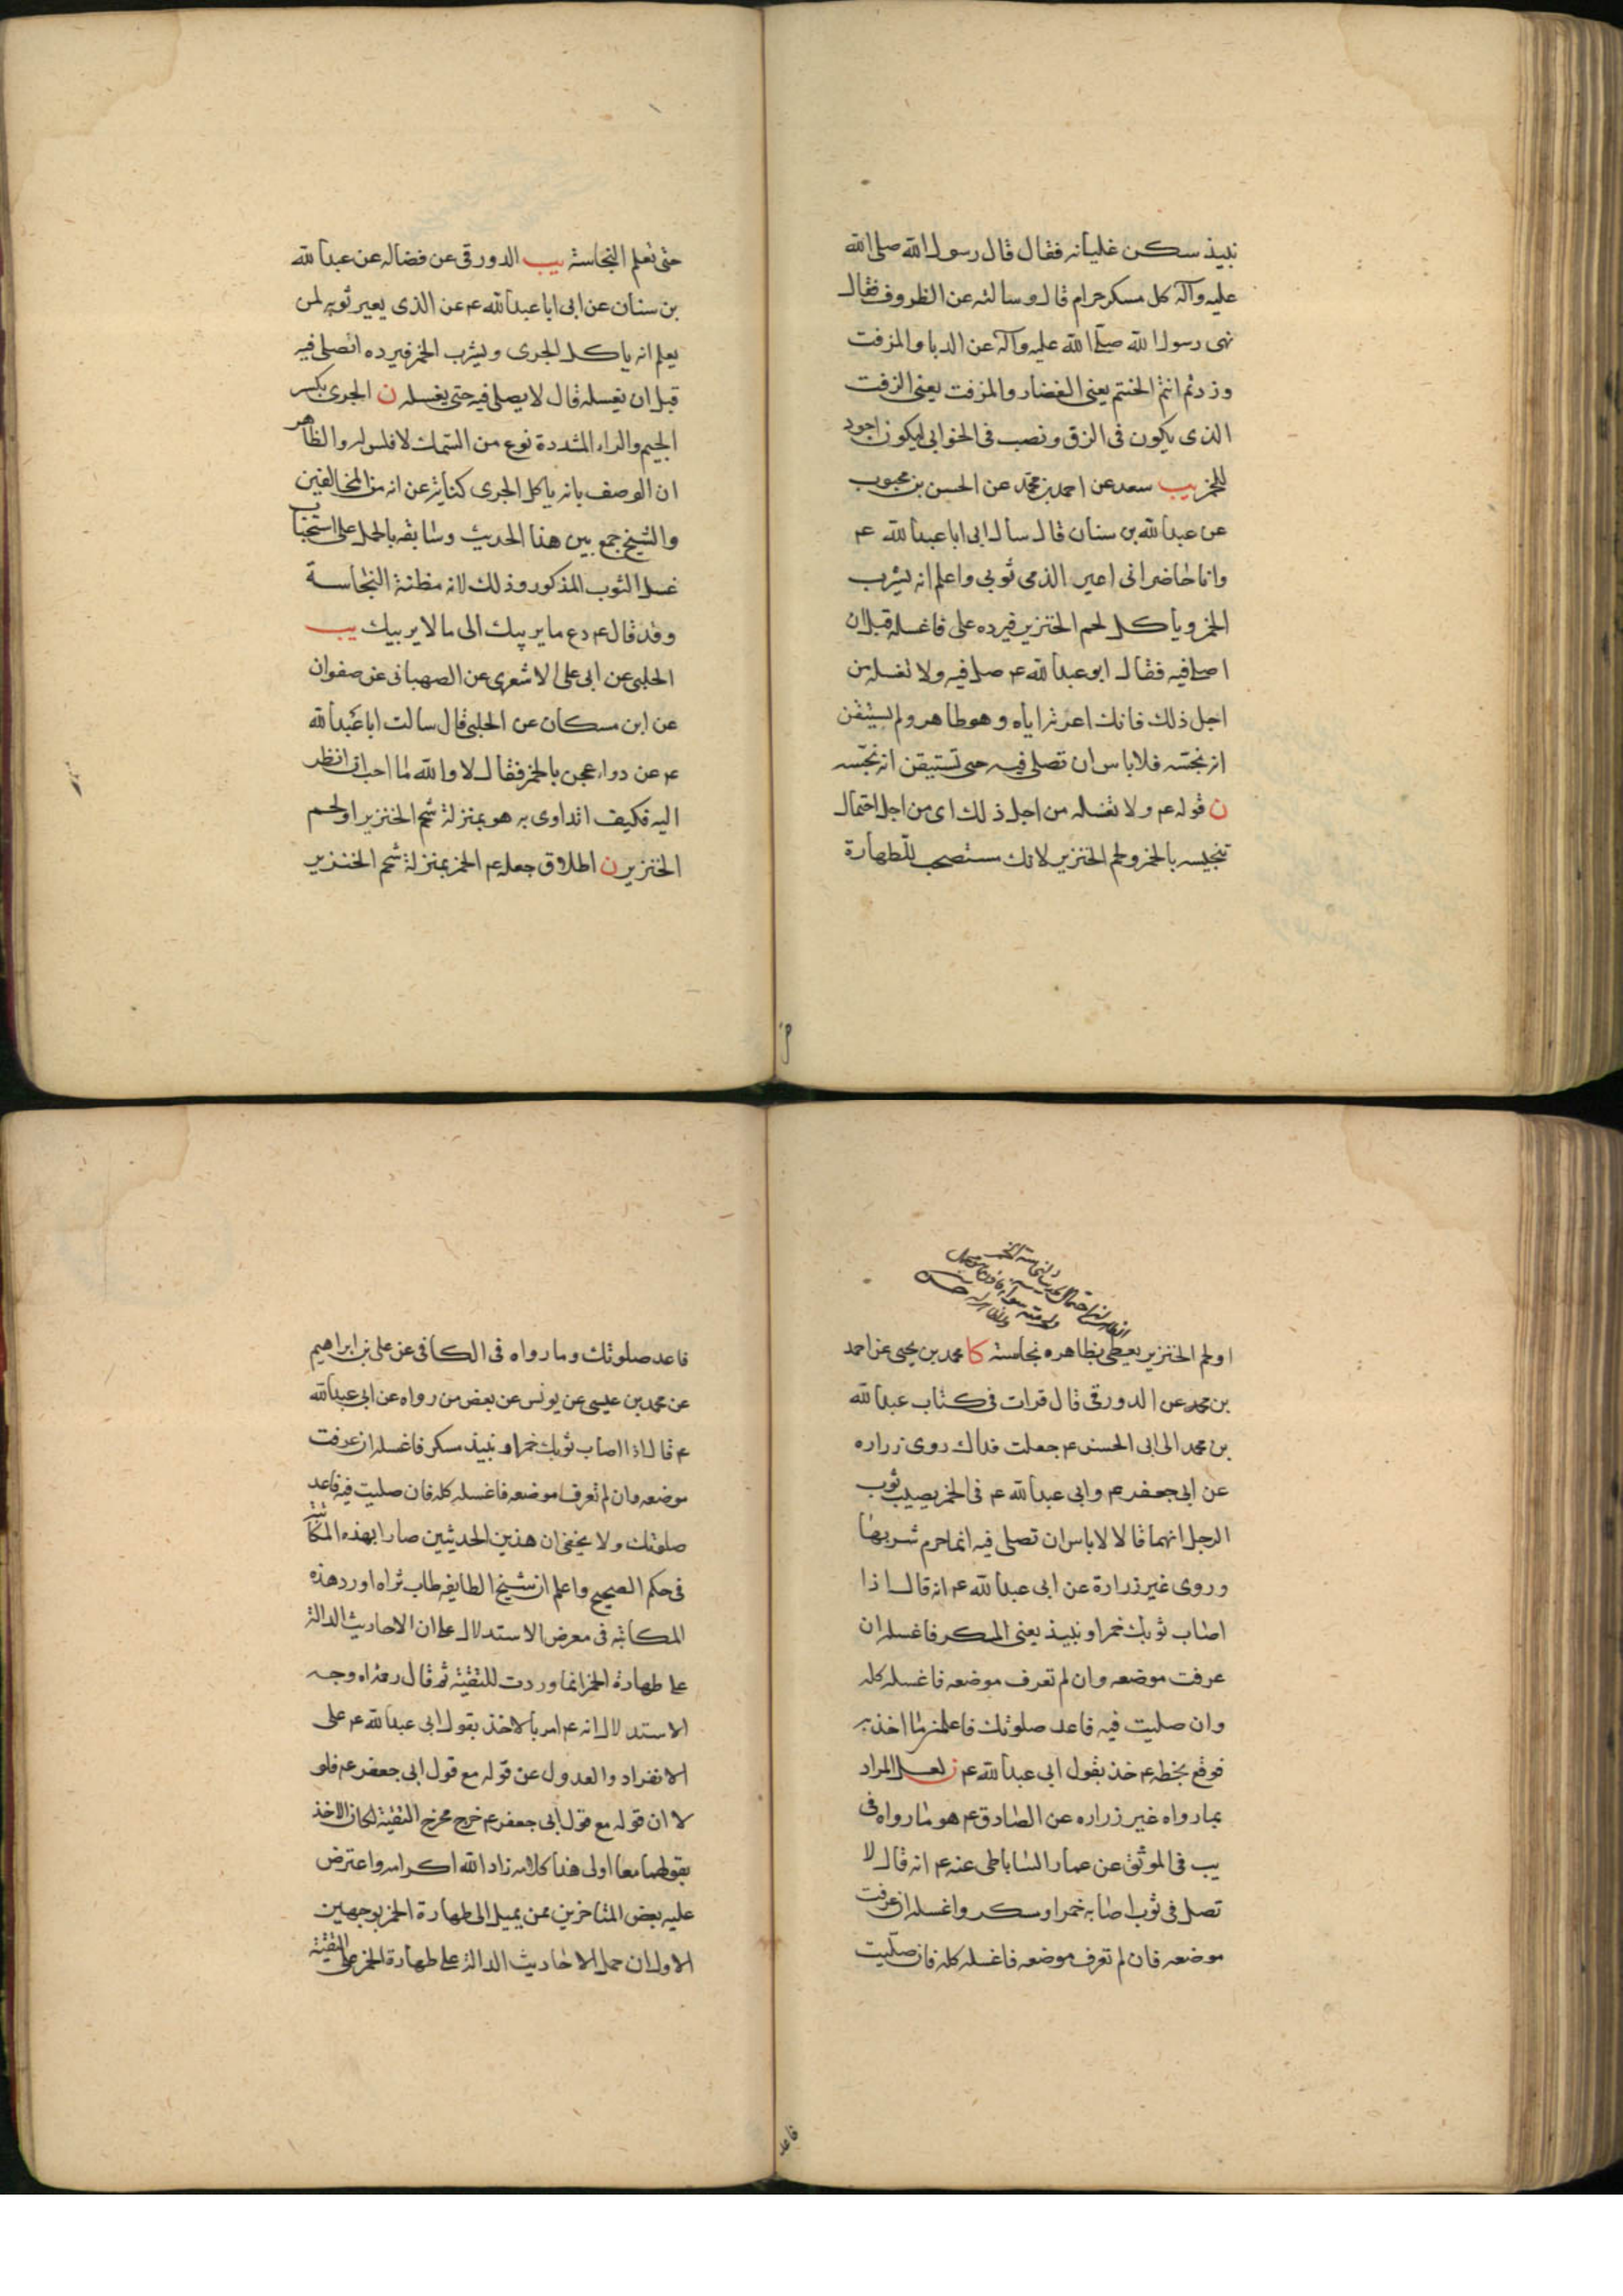 نبيذ سكن غليانه فقال قال رسول الله صلى الله
عليه وآله كل مسكر حرام قال وسالته عن الظروف فقال
نهى رسول الله صلى الله عليه وآله عن الدبا والمزفت
وزدتم انتم الحنتم يعنى الغضار والمزفت يعنى الزفت
الذى يكون فى الزق ونصب فى الخوابى ليكون اجود
للخمر يب سعد عن احمد بن محمد عن الحسن بن محبوب
عن عبد الله بن سنان قال سال ابى ابا عبد الله ع
وانا حاضر انى اعير الذمى ثوبى واعلم انه يشرب
الخمر وياكل لحم الخنزير فيرده على فاغسله قبل ان
اصلى فيه فقال ابو عبد الله ع صل فيه ولا تغسله من
اجل ذلك فانك اعرته اياه وهو طاهر ولم يستيقن
انه نجسه فلا باس ان تصلى فيه حتى تستيقن انه نجسه
ن قوله ع ولا تغسله من اجل ذلك اى من اجل احتمال
تنجيسه بالخمر ولحم الخنزير لانك مستصحب للطهارة
حتى تعلم النجاسة يب الدورقى عن فضاله عن عبد الله
بن سنان عن ابى ابا عبد الله ع عن الذى يعير ثوبه لمن
يعلم انه ياكل الجرى ويشرب الخمر فيرده ايصلى فيه
قبل ان يغسله قال لا يصلى فيه حتى يغسله ن الجرى بكسر
الجيم والراء المشددة نوع من السمك لا فلس له والظاهر
ان الوصف بانه ياكل الجرى كناية عن انه من المخالفين
والشيخ جمع بين هذا الحديث وسابقه بالحمل على استحباب
غسل الثوب المذكور وذلك لانه مظنة النجاسة
وقد قال ع دع ما يريبك الى ما لا يريبك يب
الحلبى عن ابى على الاشعرى عن الصهبانى عن صفوان
عن ابن مسكان عن الحلبى قال سالت ابا عبد الله
ع عن دواء عجن بالخمر فقال لا والله ما احب ان انظر
اليه فكيف اتداوى به هو بمنزلة شحم الخنزير او لحم
الخنزير ن اطلاق جعله ع الخمر بمنزلة شحم الخنزير
او لحم الخنزير يعطى بظاهره نجاسته كا محمد بن يحيى عن احمد
بن محمد عن الدورقى قال قرات فى كتاب عبد الله
بن محمد الى ابى الحسن ع جعلت فداك روى زراره
عن ابى جعفر ع وابى عبد الله ع فى الخمر يصيب ثوب
الرجل انهما قالا لا باس ان تصلى فيه انما حرم شربها
وروى غير زرارة عن ابى عبد الله ع انه قال اذا
اصاب ثوبك خمر او نبيذ يعنى المسكر فاغسله ان
عرفت موضعه وان لم تعرف موضعه فاغسله كله
وان صليت فيه فاعد صلوتك فاعلمنى ما اخذ به
فوقع بخطه ع خذ بقول ابى عبد الله ع ن لعل المراد
بما رواه غير زراره عن الصادق ع هو ما رواه فى
يب فى الموثق عن عمار الساباطى عنه ع انه قال لا
تصل فى ثوب اصابه خمر او مسكر واغسله ان عرفت
موضعه فان لم تعرف موضعه فاغسله كله فان صليت
فاعد
فاعد صلوتك وما رواه فى الكافى عن على بن ابراهيم
عن محمد بن عيسى عن يونس عن بعض من رواه عن ابى عبد الله
ع قال اذا اصاب ثوبك خمر او نبيذ مسكر فاغسله ان عرفت
موضعه وان لم تعرف موضعه فاغسله كله فان صليت فيه فاعد
صلوتك ولا يخفى ان هذين الحديثين صارا بهذه المكاتبة
فى حكم الصحيح واعلم ان شيخ الطايفه طاب ثراه اورد هذه
المكاتبه فى معرض الاستدلال على ان الاحاديث الدالة
على طهارة الخمر انما وردت للتقية ثم قال ره وجه
الاستدلال انه ع امر بالاخذ بقول ابى عبد الله ع على
الانفراد والعدول عن قوله مع قول ابى جعفر ع فلو
لا ان قوله مع قول ابى جعفر ع خرج مخرج التقية لكان الاخذ
بقولهما معا اولى هذا كلامه زاد الله اكرامه واعترض
عليه بعض المتاخرين ممن يميل الى طهارة الخمر بوجهين
الاول ان حمل الاحاديث الدالة على طهارة الخمر على التقية